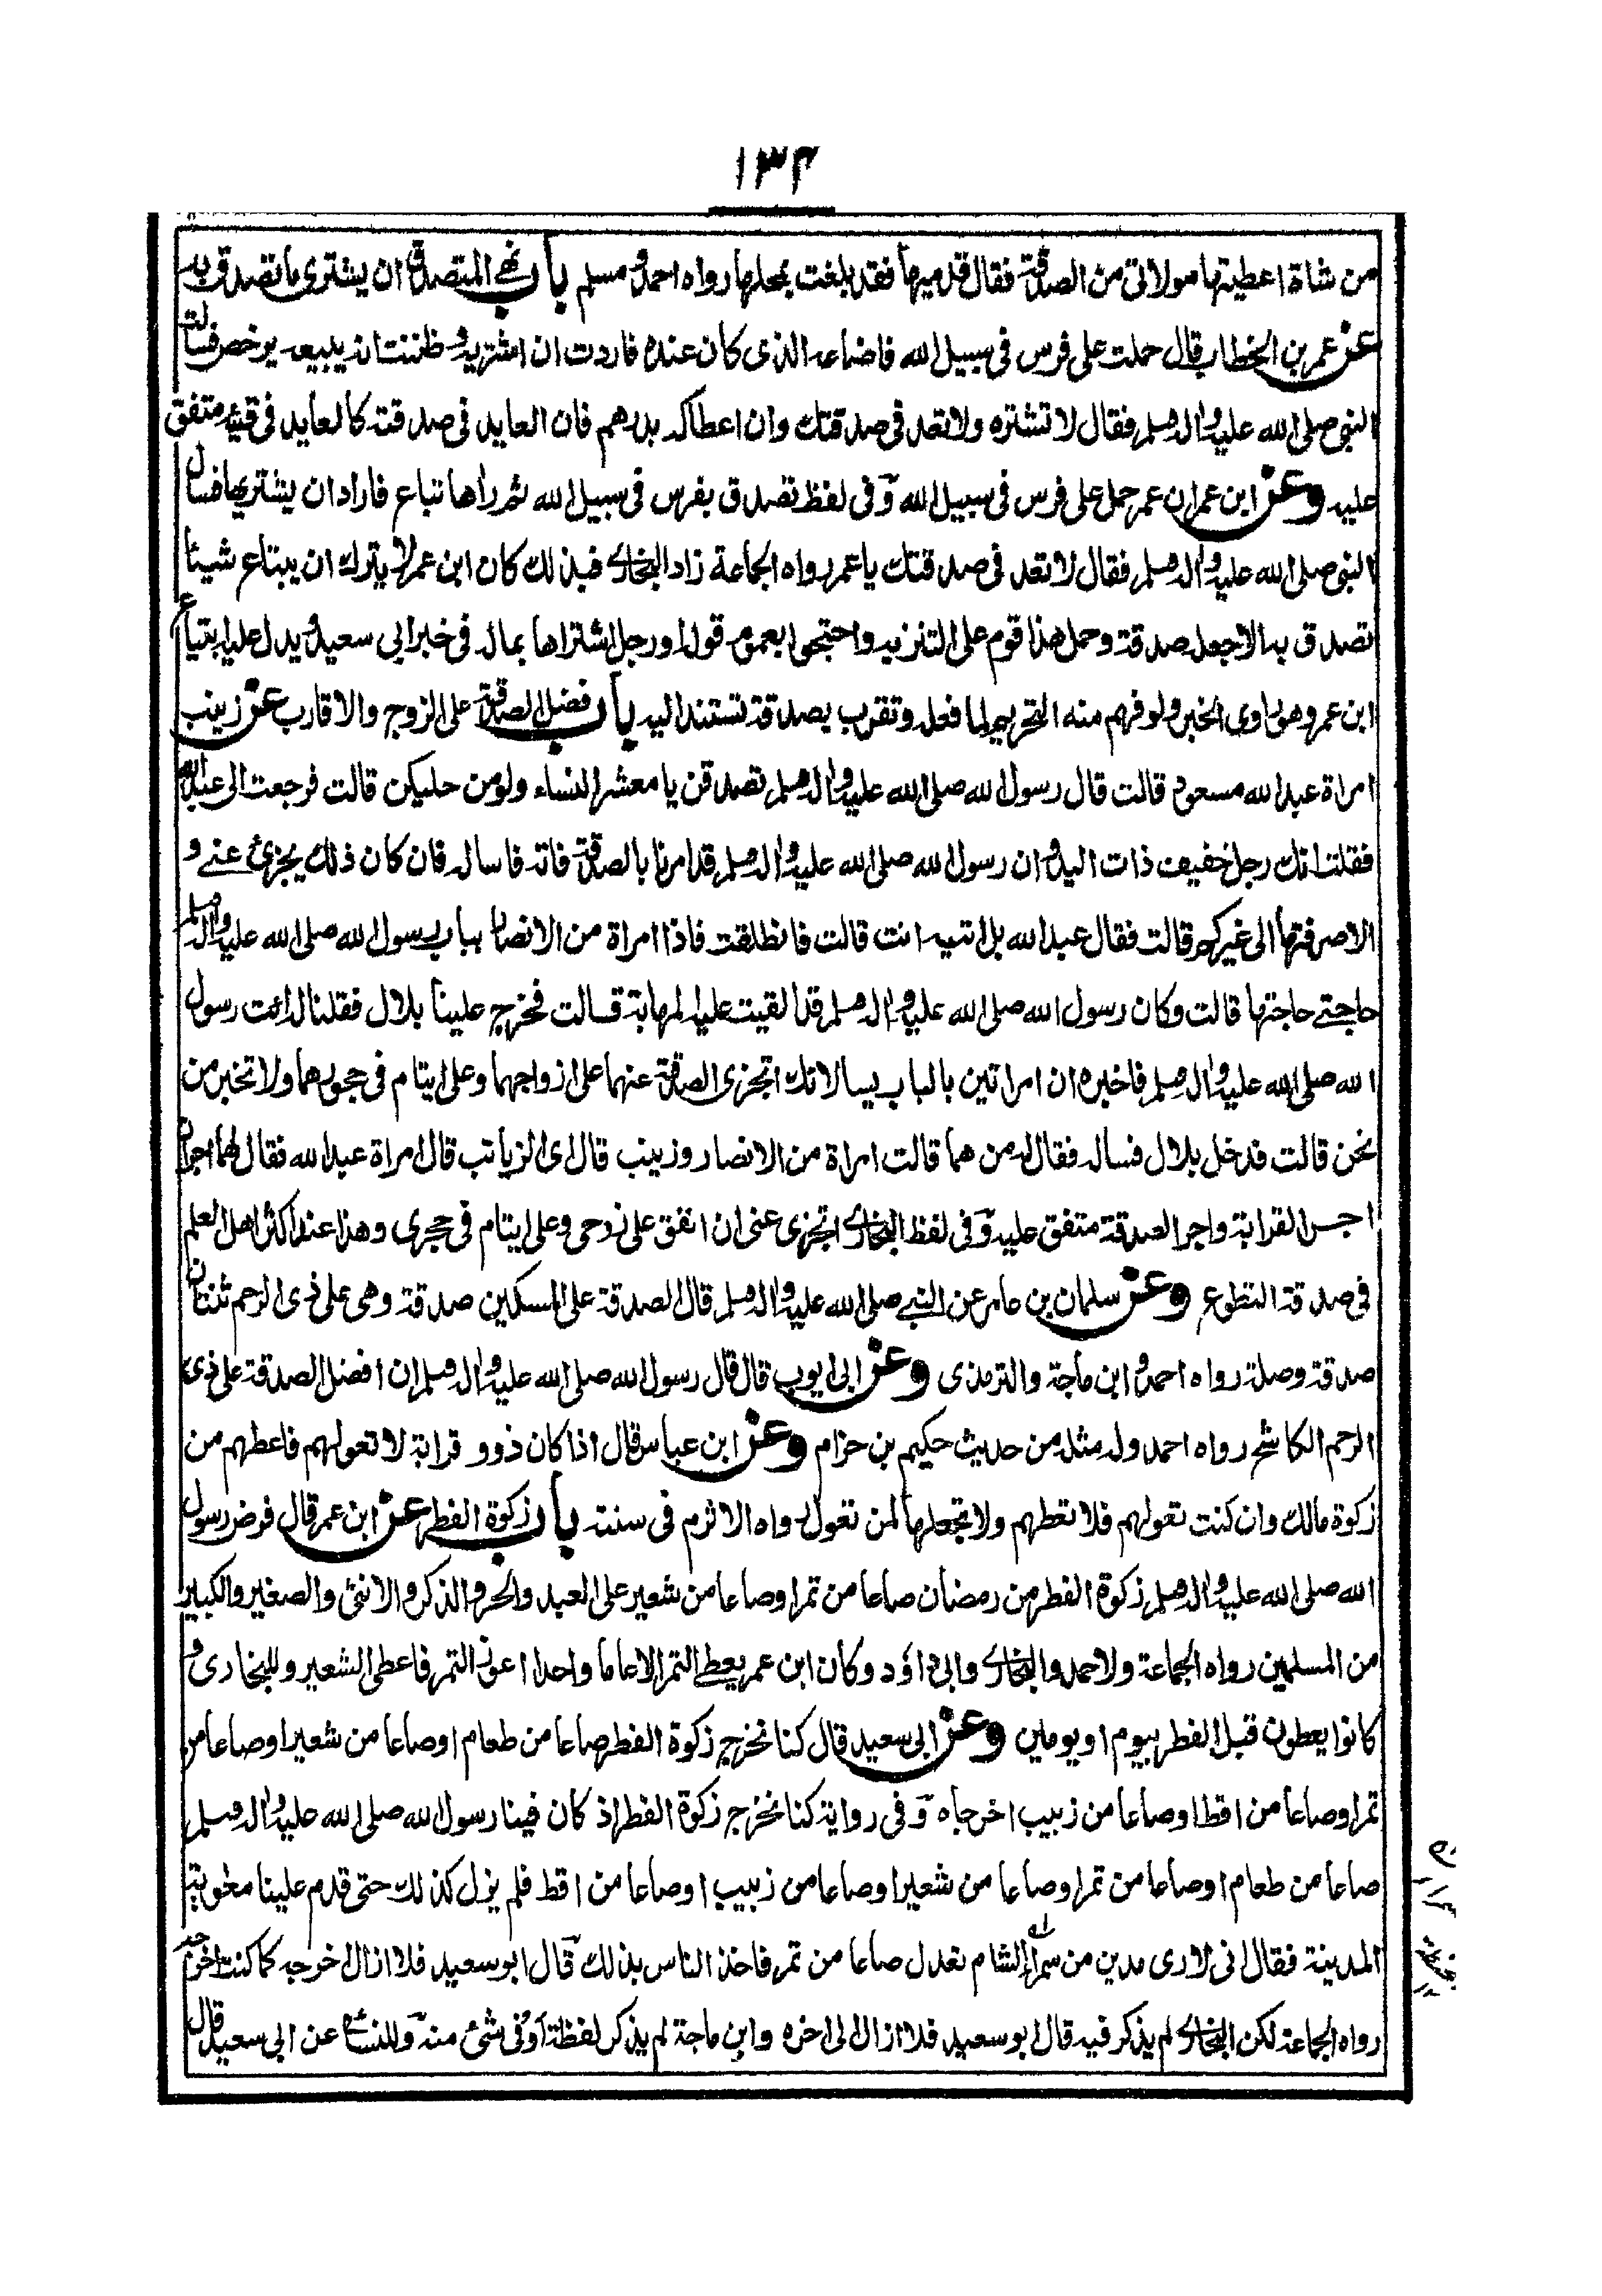 ١٣٤
من شاة اعطيتها مولاتى من الصدقة فقال قدميها فقد بلغت محلها رواه احمد و مسلم باب نهى المتصدق ان يشترى ما تصدق به
عن عمر بن الخطاب قال حملت على فرس فى سبيل الله فاضاعه الذى كان عنده فاردت ان اشتريه و ظننت انه يبيعه برخص فسالت
النبى صلى الله عليه واله وسلم فقال لا تشتره ولا تعد فى صدقتك وان اعطاكه بدرهم فان العايد فى صدقته كالعايد فى قيئه متفق
عليه وعن ابن عمر ان عمر حمل على فرس فى سبيل الله وفى لفظ تصدق بفرس فى سبيل الله ثم راها تباع فاراد ان يشتريها فسال
النبى صلى الله عليه واله وسلم فقال لا تعد فى صدقتك يا عمر رواه الجماعة زاد البخارى فبذلك كان ابن عمر لا يترك ان يبتاع شيئا
تصدق به الا جعله صدقة وحمل هذا قوم على التنزيه واحتجوا بعموم قوله او رجل اشتراها بماله فى خبر ابى سعيد ويدل عليه ابتياع
ابن عمر وهو راوى الخبر ولو فهم منه التحريم لما فعله وتقرب بصدقة تستند اليه باب فضل الصدقة على الزوج والاقارب عن زينب
امراة عبد الله مسعود قالت قال رسول الله صلى الله عليه واله وسلم تصدقن يا معشر النساء ولو من حليكن قالت فرجعت الى عبد الله
فقلت انك رجل خفيف ذات اليد وان رسول الله صلى الله عليه واله وسلم قد امرنا بالصدقة فاته فاساله فان كان ذلك يجزئ عنى و
الا صرفتها الى غيركم قالت فقال عبد الله بل ائتيه انت قالت فانطلقت فاذا امراة من الانصار بباب رسول الله صلى الله عليه واله وسلم
حاجتى حاجتها قالت وكان رسول الله صلى الله عليه واله وسلم قد القيت عليه المهابة قالت فخرج علينا بلال فقلنا له ائت رسول
الله صلى الله عليه واله وسلم فاخبره ان امراتين بالباب يسالانك اتجزى الصدقة عنهما على ازواجهما وعلى ايتام فى حجورهما ولا تخبر من
نحن قالت فدخل بلال فساله فقال له من هما قالت امراة من الانصار وزينب قال اى الزيانب قال امراة عبد الله فقال لهما اجران
اجر القرابة واجر الصدقة متفق عليه وفى لفظ البخارى اتجزى عنى ان انفق على زوجى وعلى ايتام فى حجرى وهذا عند اكثر اهل العلم
فى صدقة التطوع وعن سلمان بن عامر عن النبى صلى الله عليه واله وسلم قال الصدقة على المسكين صدقة وهى على ذى الرحم ثنتان
صدقة وصلة رواه احمد و ابن ماجة والترمذى وعن ابى ايوب قال قال رسول الله صلى الله عليه واله وسلم ان افضل الصدقة على ذى
الرحم الكاشح رواه احمد وله مثله من حديث حكيم بن حزام وعن ابن عباس قال اذا كان ذوو قرابة لا تعولهم فاعطهم من
زكوة مالك وان كنت تعولهم فلا تعطهم ولا تجعلها لمن تعول رواه الاثرم فى سننه باب زكوة الفطر عن ابن عمر قال فرض رسول
الله صلى الله عليه واله وسلم زكوة الفطر من رمضان صاعا من تمر او صاعا من شعير على العبد والحر والذكر والانثى والصغير والكبير
من المسلمين رواه الجماعة ولاحمد والبخارى وابى داؤد وكان ابن عمر يعطى التمر الا عاما واحدا اعوز التمر فاعطى الشعير وللبخارى و
كانوا يعطون قبل الفطر بيوم او يومين وعن ابى سعيد قال كنا نخرج زكوة الفطر صاعا من طعام او صاعا من شعير او صاعا من
تمر او صاعا من اقط او صاعا من زبيب اخرجاه وفى رواية كنا نخرج زكوة الفطر اذ كان فينا رسول الله صلى الله عليه واله وسلم
صاعا من طعام او صاعا من تمر او صاعا من شعير او صاعا من زبيب او صاعا من اقط فلم يزل كذلك حتى قدم علينا معوية
المدينة فقال انى لارى مدين من سمراء الشام تعدل صاعا من تمر فاخذ الناس بذلك قال ابو سعيد فلا ازال اخرجه كما كنت اخرجه
رواه الجماعة لكن البخارى لم يذكر فيه قال ابو سعيد فلا ازال الى اخره وابن ماجة لم يذكر لفظة او فى شئ منه وللنسائى عن ابى سعيد قال